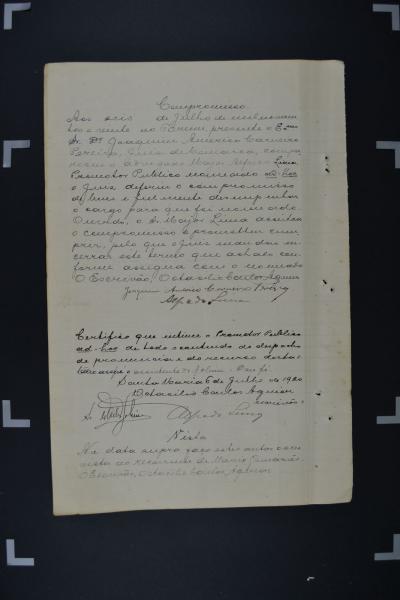 Compromisso
Aos seis de Julho de mil novecen
tos e vinte no Forum, presente o Exmo
Sr. Dr. Joaquim Americo Carneiro
Pereira, Juiz de Comarca, compa
receu o advogado Major Alfredo Lima
Promotor Publico nomeado ad-hoc
o Juiz deferiu o compromisso
de bem e fielmente desempenhar
o cargo para que foi nomeado.
Ouvido, o Sr. Major Lima acceitou
o compromisso e prometteu cum
prir, pelo que o Juiz mandou
encerrar este termo que achado con
forme assigna com o nomeado
O Escrivão, Octacilio Carlos Aquino
Joaquim Americo Carneiro Pereira
Alfredo Lima
Certifico que intimei o Promotor Publico
ad-hoc de todo o contendo do despacho
de pronuncia e do recurso
Dou fé.
Santa Maria 6 de Julho de 1920
Octacilio Carlos Aquino
escrivão
Alfredo Lima
Vista
Na data supra faço estes autos com
vista ao recorrente
O Escrivão, Octacilio Carlos Aquino